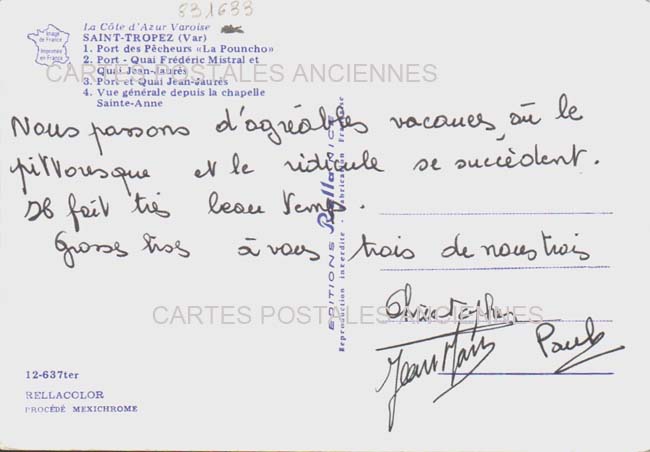 831633
Image
de France
Imprimée
en France
La Côte d'Azur Varoise
SAINT-TROPEZ (Var)
1. Port des Pêcheurs «La Pouncho»
2. Port - Quai Frédéric Mistral et
Quai Jean-Jaurès
3. Port et Quai Jean-Jaurès
4. Vue générale depuis la chapelle
Sainte-Anne
CARTES POSTALES ANCIENNES
Nous passons d'agréables vacances où le
pittoresque et le ridicule se succèdent.
Il fait très beau temps.
Grosses bises à vous trois de nous trois
Christophe
Jean Marie
Paul
CARTES POSTALES ANCIENNES
EDITIONS Rella NICE
Reproduction interdite - Fabrication Française
12-637ter
RELLACOLOR
PROCÉDÉ MEXICHROME